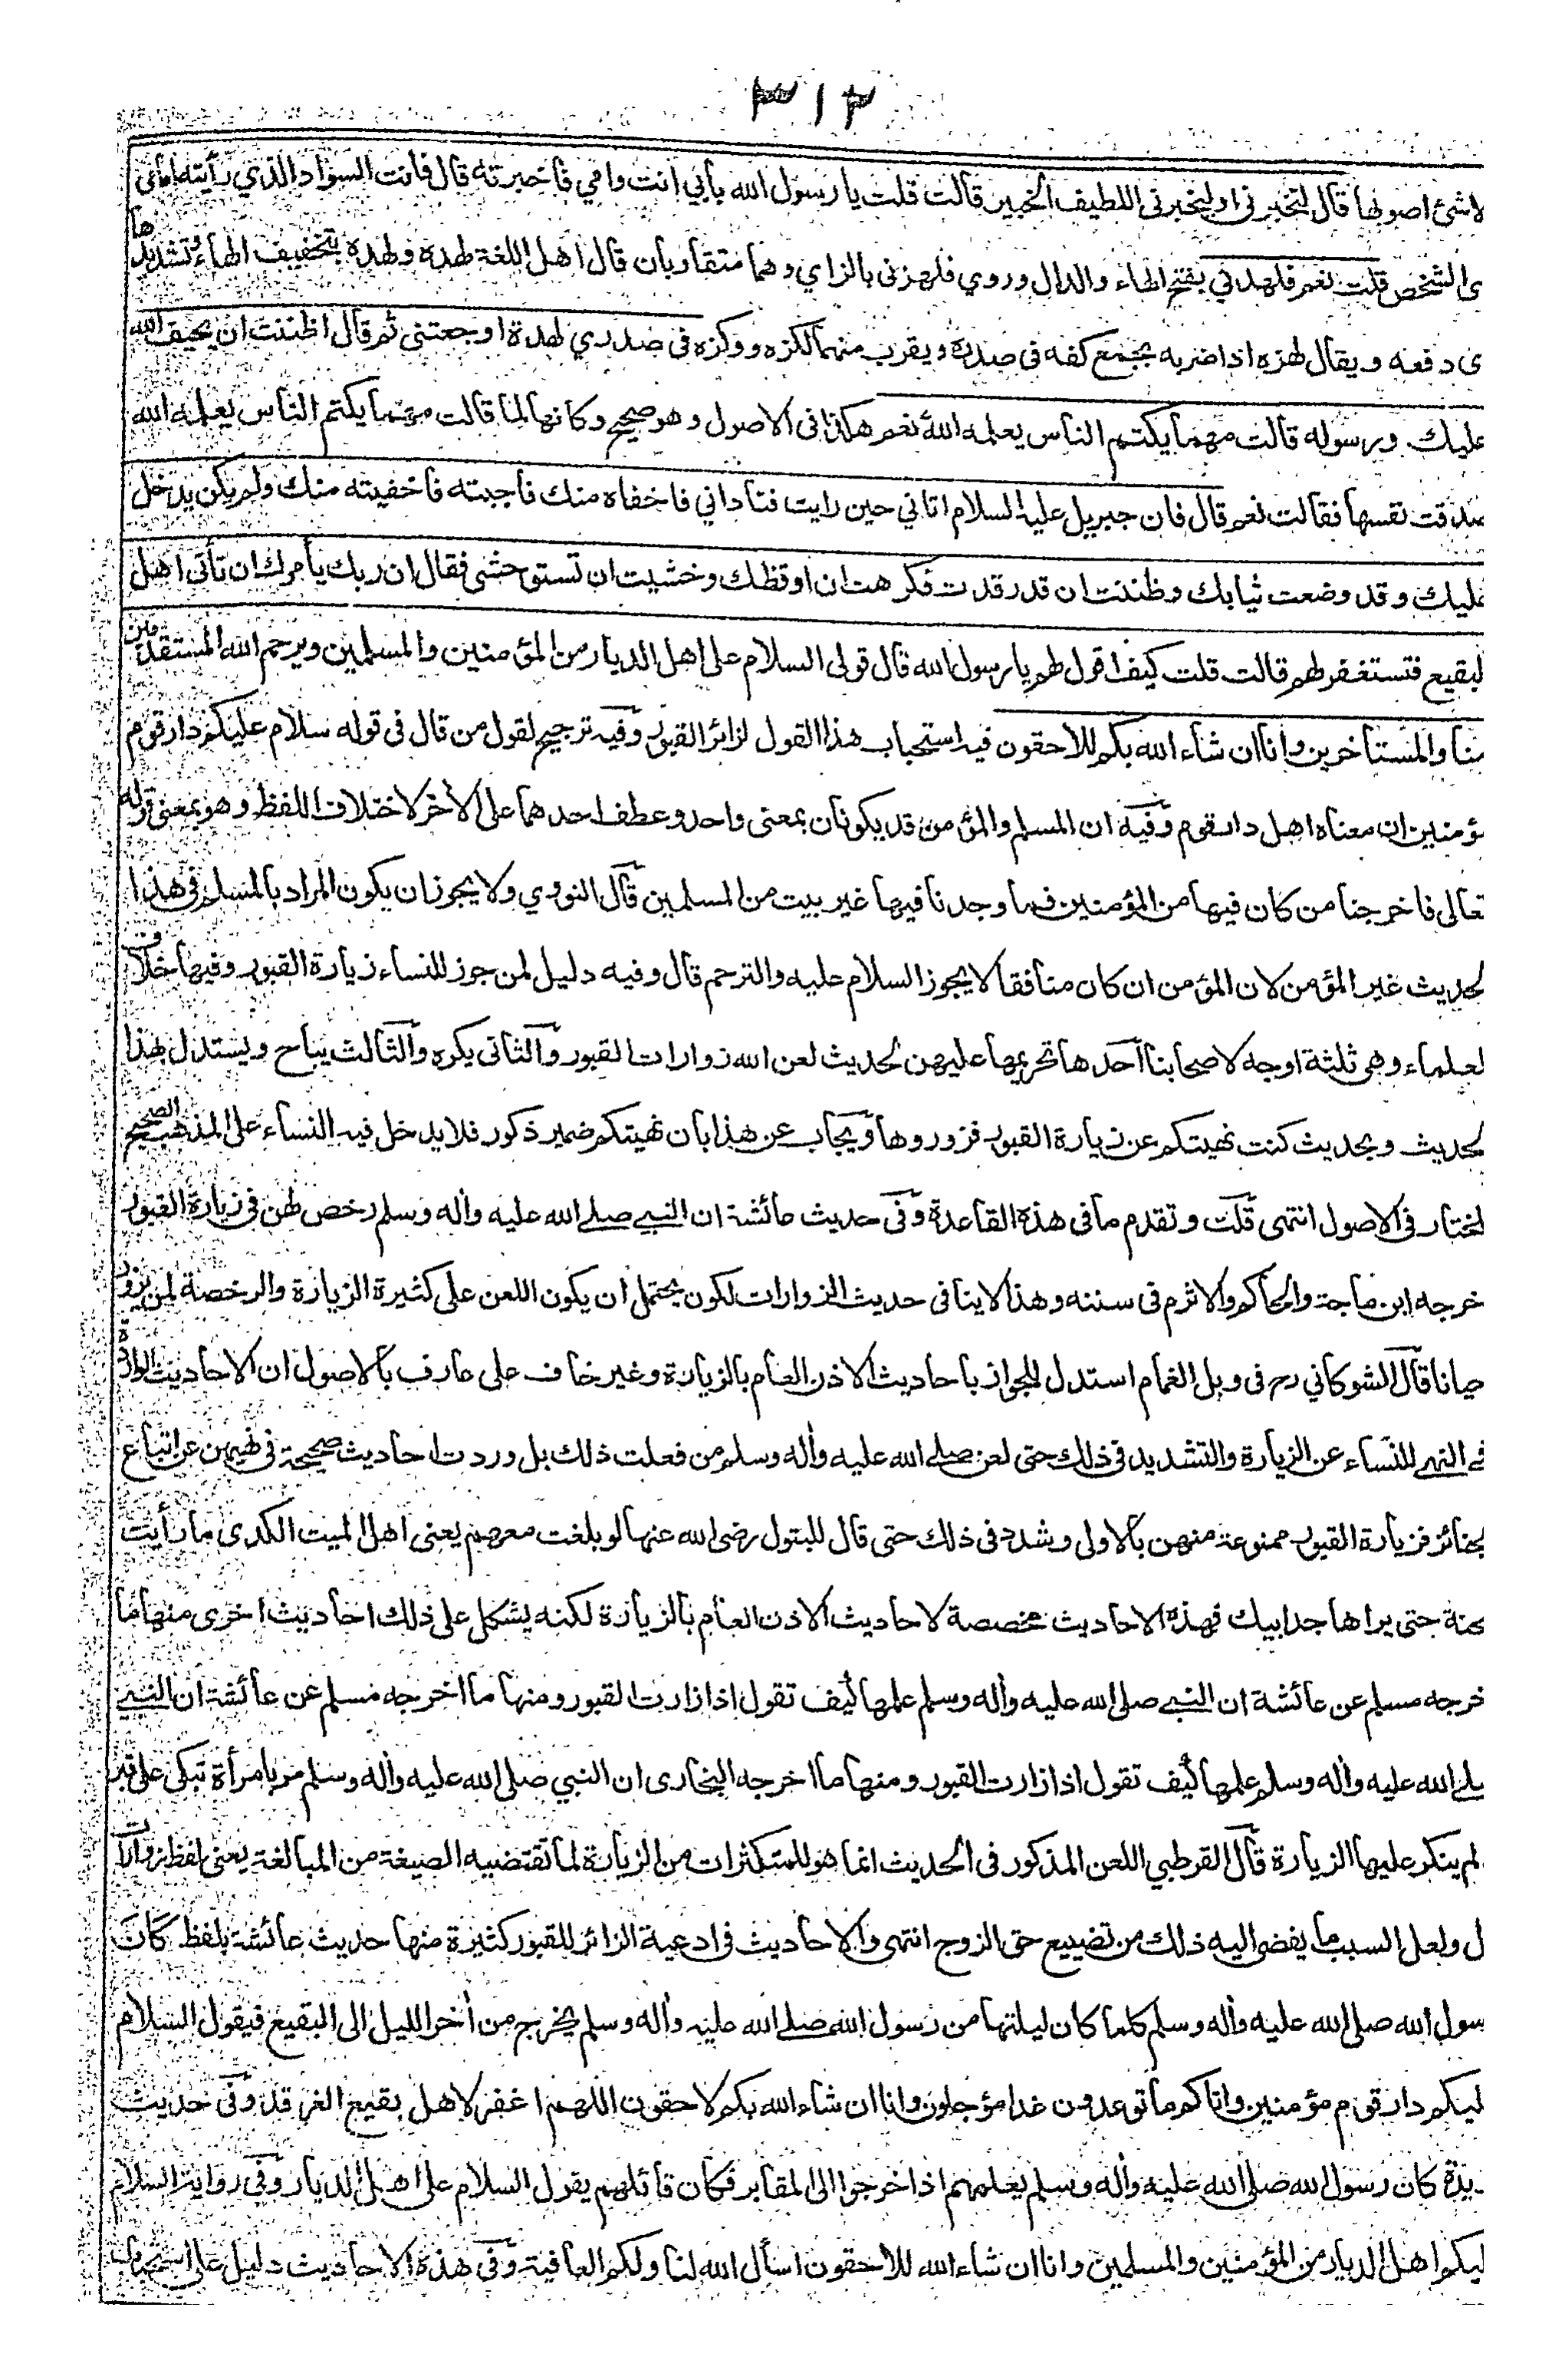 ٣١٢
لاشئ اصوبها قال لتخبرني او ليخبرني اللطيف الخبير قالت قلت يا رسول الله بأبي انت وامي فاخبرته قال فانت السواد الذي رأيته امامي
ى الشخص قلت نعم فلهدني بفتح الهاء والدال وروي فلهزنى بالزاي وهما متقاربان قال اهل اللغة لهده ولهده بتخفيف الهاء وتشديدها
ى دفعه ويقال لهزه اذا ضربه بجمع كفه فى صدره ويقرب منهما لكزه ووكزه فى صدري لهدة اوجعتنى ثم قال اظننت ان يحيف الله
عليك ورسوله قالت مهما يكتم الناس يعلمه الله نعم هكذا فى الاصول وهو صحيح وكانها لما قالت مهما يكتم الناس يعلمه الله
صدقت نفسها فقالت نعم قال فان جبريل عليه السلام اتاني حين رايت فناداني فاخفاه منك فاجبته فاخفيته منك ولم يكن يدخل
عليك وقد وضعت ثيابك وظننت ان قد رقدت فكرهت ان اوقظك وخشيت ان تستوحشى فقال ان ربك يأمرك ان تأتى اهل
لبقيع فتستغفر لهم قالت قلت كيف اقول لهم يا رسول الله قال قولى السلام على اهل الديار من المؤمنين والمسلمين ويرحم الله المستقدمين
منا والمستأخرين وانا ان شاء الله بكم للاحقون فيه استحباب هذا القول لزائر القبور وفيه ترجيح لقول من قال فى قوله سلام عليكم دار قوم
مؤمنين ان معناه اهل دار قوم وفيه ان المسلم والمؤمن قد يكونان بمعنى واحد وعطف احدهما على الأخر لاختلاف اللفظ وهو بمعنى قوله
تعالى فاخرجنا من كان فيها من المؤمنين فما وجدنا فيها غير بيت من المسلمين قال النووي ولا يجوز ان يكون المراد بالمسلم فى هذا
لحديث غير المؤمن لان المؤمن ان كان منافقا لا يجوز السلام عليه والترحم قال وفيه دليل لمن جوز للنساء زيارة القبور وفيها خلاف
لعلماء وهى ثلثة اوجه لاصحابنا احدها تحريمها عليهن لحديث لعن الله زوارات القبور والثانى يكره والثالث يباح ويستدل بهذا
لحديث وبحديث كنت نهيتكم عن زيارة القبور فزوروها ويجاب عن هذا بان نهيتكم ضمير ذكور فلا يدخل فيه النساء على المذهب الصحيح
لمختار فى الاصول انتهى قلت وتقدم ما فى هذه القاعدة وفى حديث عائشة ان النبي صلى الله عليه وأله وسلم رخص لهن فى زيارة القبور
خرجه ابن ماجة والحاكم والاثرم فى سننه وهذا لا ينافى حديث الزوارات لكون يحتمل ان يكون اللعن على كثيرة الزيارة والرخصة لمن يزور
حيانا قال الشوكاني رح فى وبل الغمام استدل للجواز باحاديث الاذن العام بالزيارة وغير خاف على عارف بالاصول ان الاحاديث الواردة
فى النهى للنساء عن الزيارة والتشديد فى ذلك حتى لعن صلى الله عليه وأله وسلم من فعلت ذلك بل وردت احاديث صحيحة فى نهيهن عن اتباع
لجنائز فزيارة القبور ممنوعة منهن بالاولى وشدد فى ذلك حتى قال للبتول رضى الله عنها لو بلغت معهم يعنى اهل الميت الكدى ما رأيت
لجنة حتى يراها جد ابيك فهذه الاحاديث مخصصة لاحاديث الاذن العام بالزيارة لكنه يشكل على ذلك احاديث اخرى منها ما
خرجه مسلم عن عائشة ان النبي صلى الله عليه وأله وسلم علمها كيف تقول اذا زارت القبور ومنها ما اخرجه مسلم عن عائشة ان النبي
صلى الله عليه وأله وسلم علمها كيف تقول اذا زارت القبور ومنها ما اخرجه البخارى ان النبي صلى الله عليه وأله وسلم مر بامرأة تبكى على قبر
لم ينكر عليها الزيارة قال القرطبي اللعن المذكور فى الحديث انما هو للمتكثرات من الزيارة لما تقتضيه الصيغة من المبالغة يعنى لفظ زوارات
ل ولعل السبب ما يفضى اليه ذلك من تضييع حق الزوج انتهى والاحاديث فى ادعية الزائر للقبور كثيرة منها حديث عائشة بلفظ كان
سول الله صلى الله عليه وأله وسلم كلما كان ليلتها من رسول الله صلى الله عليه وأله وسلم يخرج من أخر الليل الى البقيع فيقول السلام
ليكم دار قوم مؤمنين واتاكم ما توعدون غدا مؤجلون وانا ان شاء الله بكم لاحقون اللهم اغفر لاهل بقيع الغرقد وفى حديث
ريدة كان رسول الله صلى الله عليه وأله وسلم يعلمهم اذا خرجوا الى المقابر فكان قائلهم يقول السلام على اهل الديار وفى رواية السلام
ليكم اهل الديار من المؤمنين والمسلمين وانا ان شاء الله للاحقون اسأل الله لنا ولكم العافية وفى هذه الاحاديث دليل على استحباب